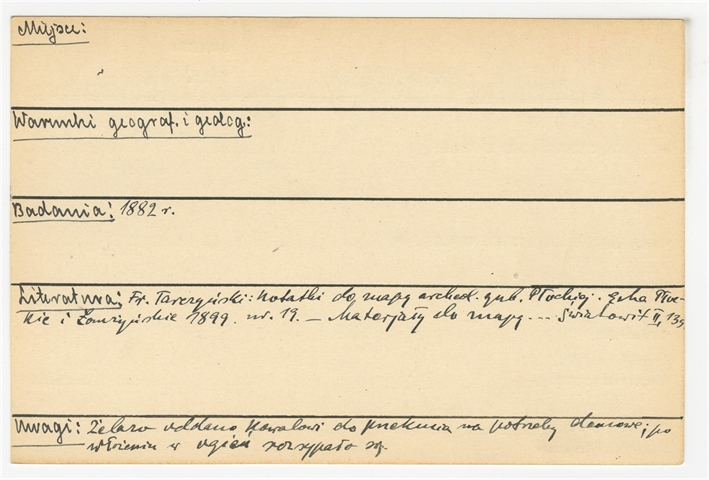 Miejsce:
Warunki geograf. i geolog.:
Badania: 1882 r.
Literatura: Fr. Tarczyński: Notatki do mapy archeol. gub. Płockiej. Echa Płoc-
kie i Łomżyńskie 1899. nr. 19. – Materjały do mapy... Światowit II, 139
Uwagi: Żelazo oddano kowalowi do przekucia na potrzeby domowe; po
włożeniu w ogień rozsypało się.